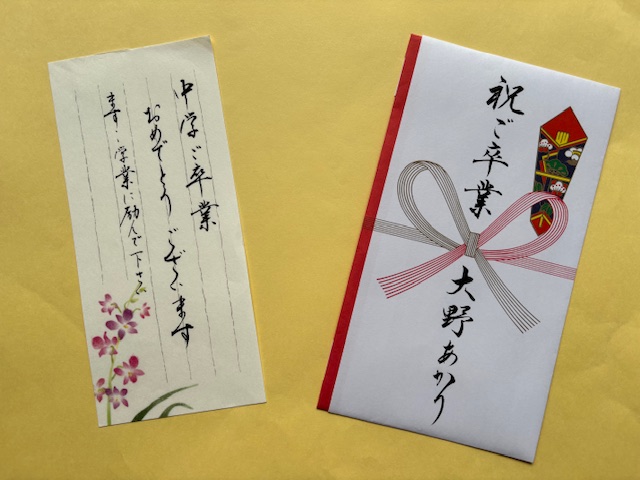 祝ご卒業
大野あかり
中学ご卒業
おめでとうございます
ます 学業に励んで下さい